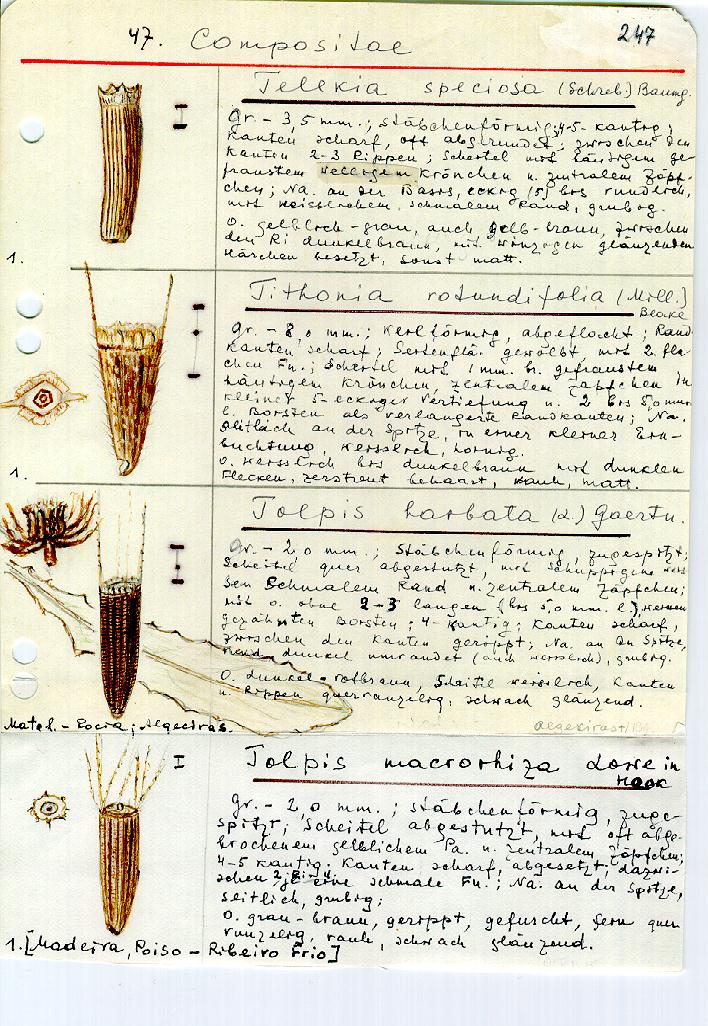 47. Compositae 247
Telekia speciosa (Schreb.) Baumg.
Gr. - 3,5 mm.; Stäbchenförmig; 4-5- kantig;
Kanten scharf, oft abgerundet; zwischen den
Kanten 2-3 Rippen; Scheitel mit häutigem ge-
franstem welligem Krönchen u. zentralem Zäpf-
chen; Na. an der Basis, eckig (5) bis rundlich,
mit weisslichem, schmalem Rand, grubig.
O. gelblich-grau, auch gelb-braun, zwischen
den Ri dunkelbraun, mit winzigen glänzenden
Härchen besetzt, sonst matt.
1.
Tithonia rotundifolia (Mill.)
Blake
Gr. - 8,0 mm.; Keilförmig, abgeflacht; Rand-
kanten scharf; Seitenflä. gewölbt, mit 2 fla-
chen Fu.; Scheitel mit 1 mm. h. gefranstem
häutigem Krönchen, zentralem Zäpfchen in
kleiner 5-eckiger Vertiefung u. 2 bis 5,0 mm
l. Borsten als verlängerte Randkanten; Na.
seitlich an der Spitze, in einer kleinen Ein-
buchtung, weisslich, hornig.
O. weisslich bis dunkelbraun mit dunklen
Flecken, zerstreut behaart, rauh, matt.
1.
Tolpis barbata (L.) Gaertn.
Gr. - 2,0 mm.; Stäbchenförmig, zugespitzt;
Scheitel quer abgestutzt, mit schuppigem weis-
sen schmalem Rand u. zentralem Zäpfchen;
mit o. ohne 2-3 langen (bis 5,0 mm. l.),
gezähnten Borsten; 4-kantig; Kanten scharf,
zwischen den Kanten gerippt; Na. an der Spitze,
rund, dunkel umrandet (auch weisslich), grubig.
O. dunkel-rotbraun, Scheitel weisslich, Kanten
u. Rippen querrunzelig, schwach glänzend.
Matal. - Rocia; Algeciras.
Tolpis macrorhiza Lowe in
Hook
Gr. - 2,0 mm.; Stäbchenförmig, zuge-
spitzt; Scheitel abgestutzt, mit oft abge-
brochenem gelblichem Pa. u. zentralem Zäpfchen;
4-5 kantig. Kanten scharf, abgesetzt; dazwi-
schen 2 Ri. u. je eine schmale Fu.; Na. an der Spitze,
seitlich, grubig;
O. grau-braun, gerippt, gefurcht, fein quer-
runzelig, rauh, schwach glänzend.
1. [Madeira, Poiso - Ribeiro Frio]